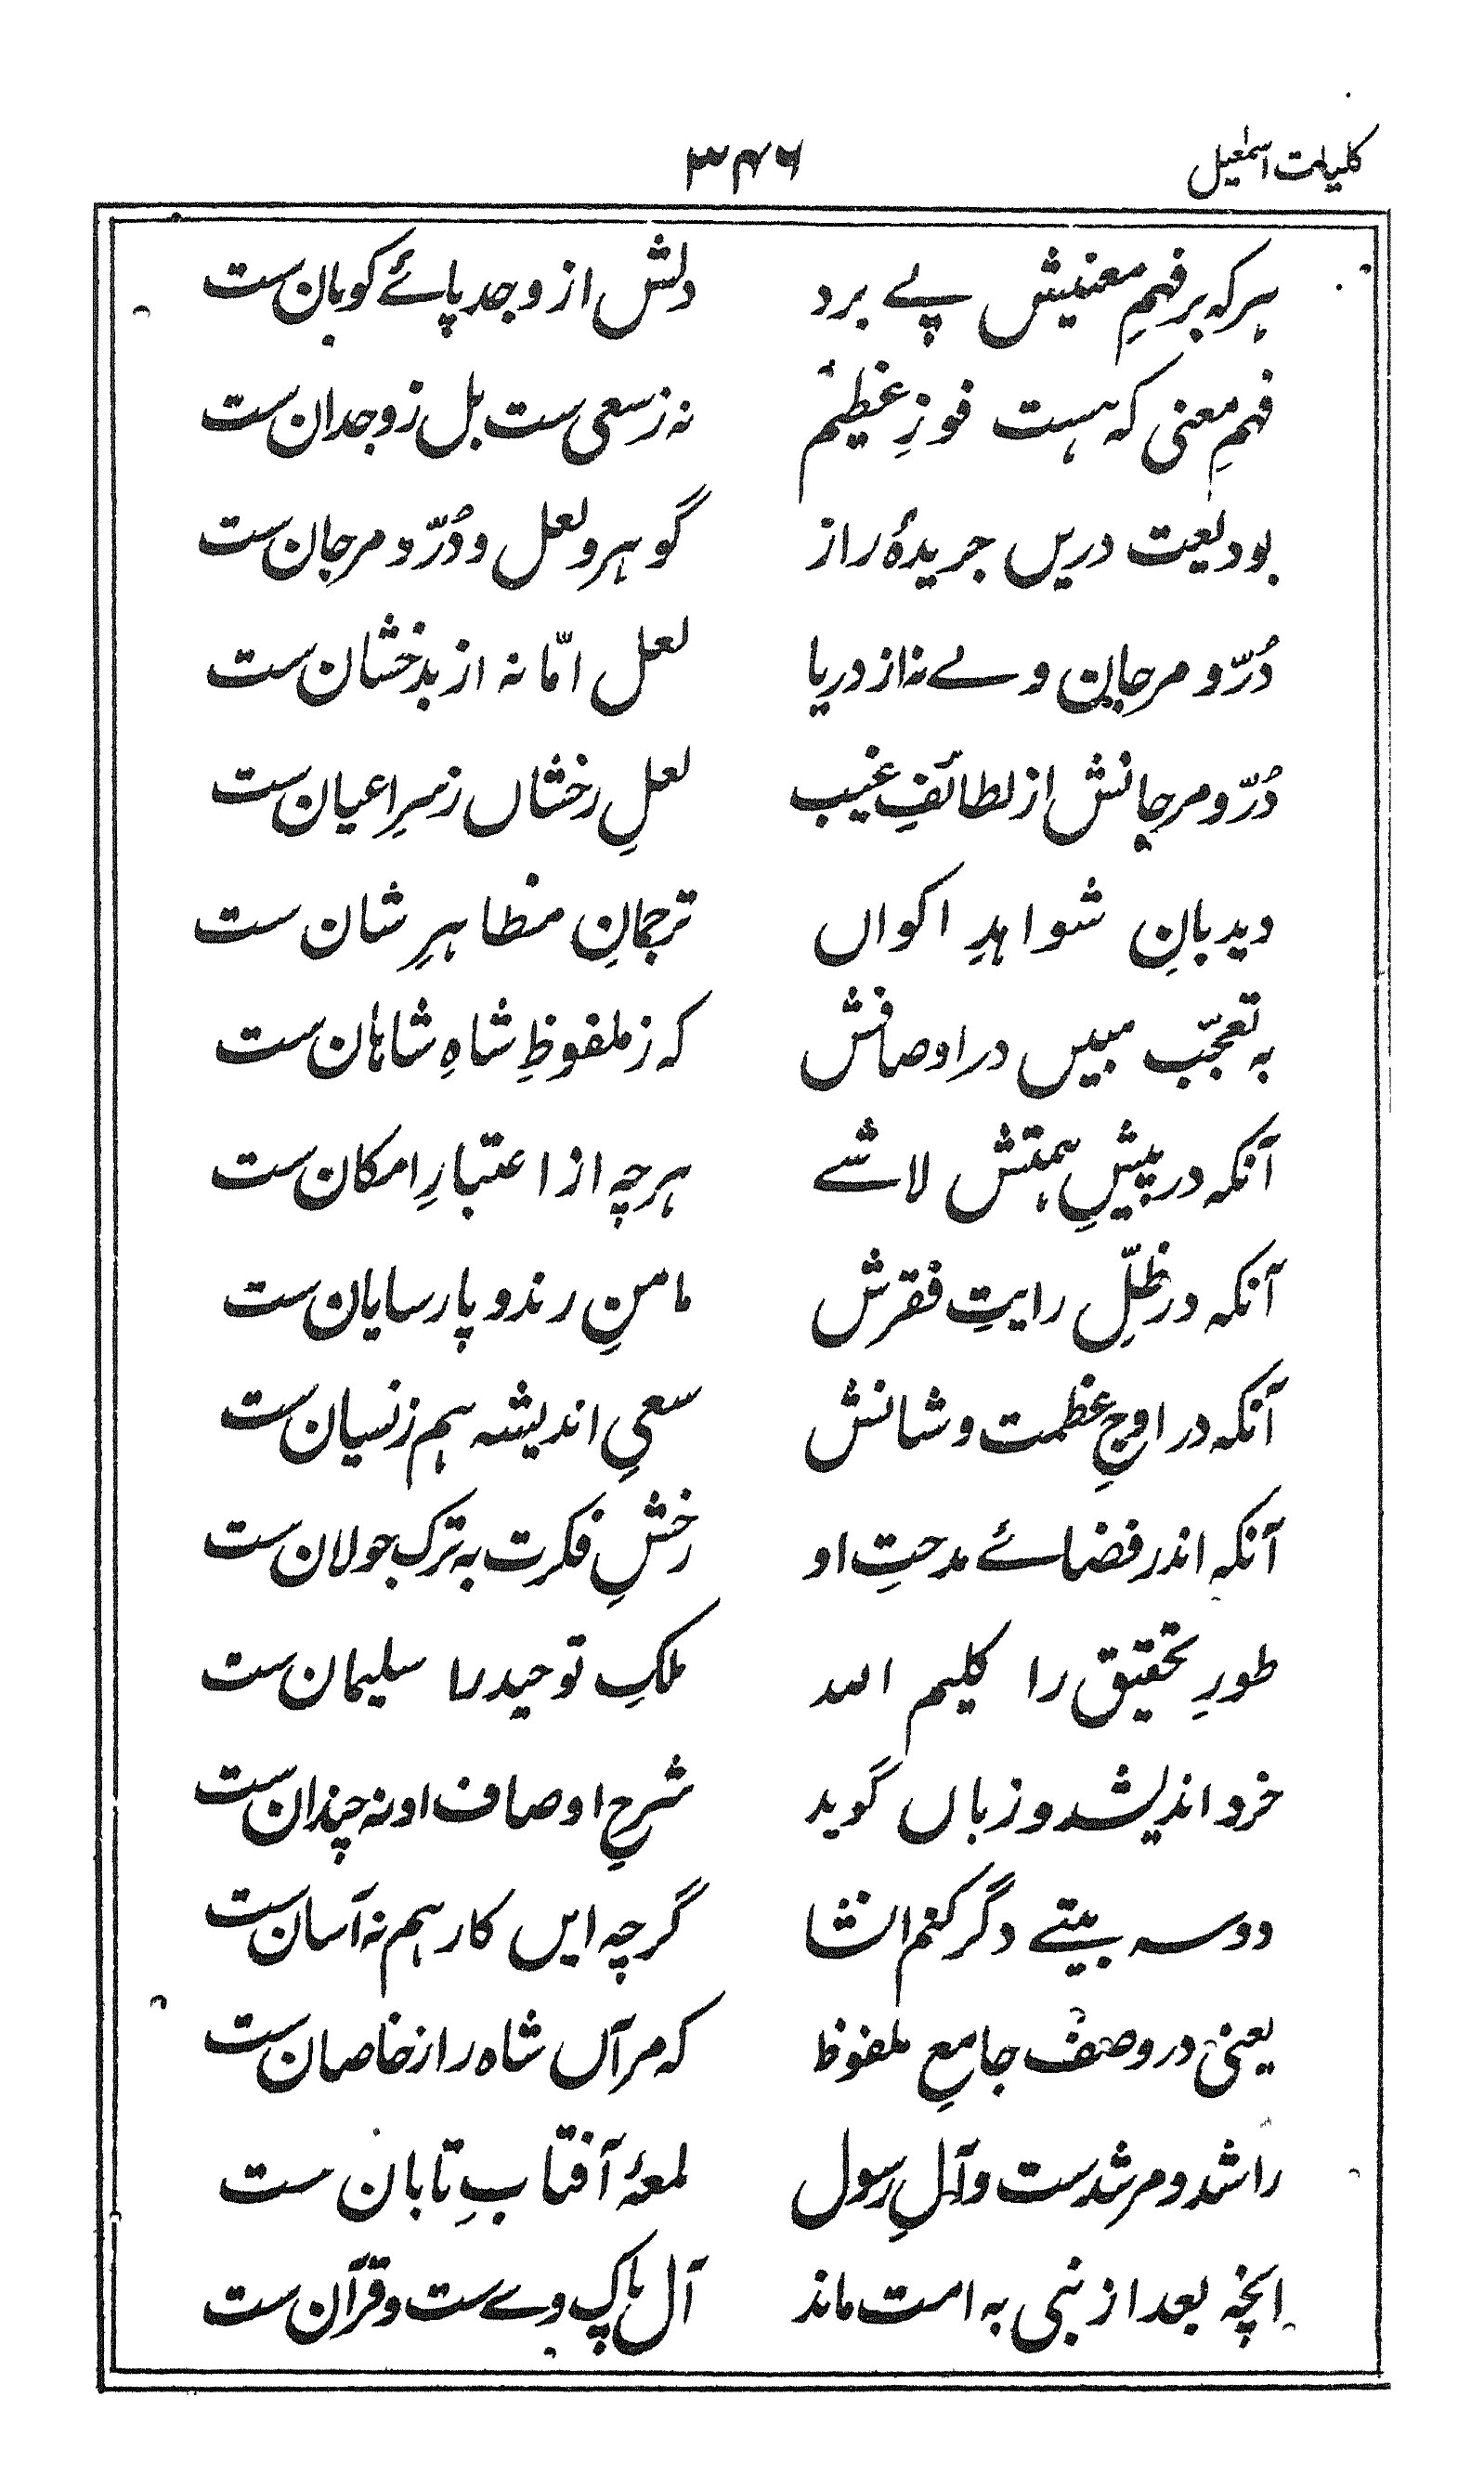 کلیات اسمٰعیل ۳۴۶
ہرکہ بر فہمِ معنیش پے برد دلش از وجد پائے کوبان ست
فہمِ معنی کہ ہست فوزِ عظیم نہ ز سعی ست بل ز وجدان ست
بودیعت دریں جریدۂ راز گوہر و لعل و دُرّ و مرجان ست
دُرّ و مرجان ولے نہ از دریا لعل امّا نہ از بدخشان ست
دُرّ و مرجانش از لطائفِ غیب لعلِ رخشاں ز سرِ اعیان ست
دیدبانِ شواہدِ اکواں ترجمانِ مظاہرِ شان ست
بہ تعجّب مبیں در اوصافش کہ ز ملفوظِ شاہِ شاہان ست
آنکہ در پیشِ ہمتش لاشے ہرچہ از اعتبارِ امکان ست
آنکہ در ظلِّ رایتِ فقرش مامنِ رند و پارسایان ست
آنکہ در اوجِ عظمت و شانش سعیِ اندیشہ ہم ز نسیان ست
آنکہ اندر فضائے مدحتِ او رخشِ فکرت بہ ترک جولان ست
طورِ تحقیق را کلیم اللہ ملکِ توحید را سلیمان ست
خرد اندیشد و زباں گوید شرحِ اوصاف او نہ چندان ست
دو سہ بیتے دگر کنم انشا گرچہ ایں کار ہم نہ آسان ست
یعنی در وصفِ جامعِ ملفوظ کہ مر آں شاہ را ز خاصان ست
راشد و مرشد ست و آلِ رسول لمعۂ آفتابِ تابان ست
آنچہ بعد از نبی بہ امت ماند آل پاکِ وے ست و قرآن ست